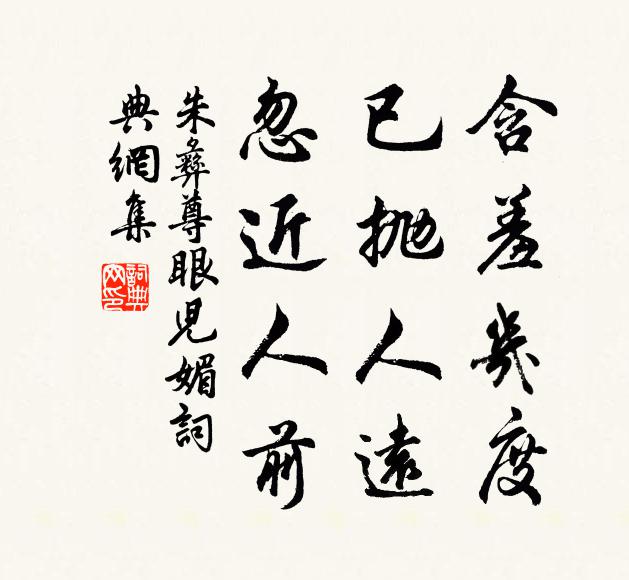 含羞幾度
已抛人遠
忽近人前
朱彝尊眼児媚詞
典網集
詞典网印